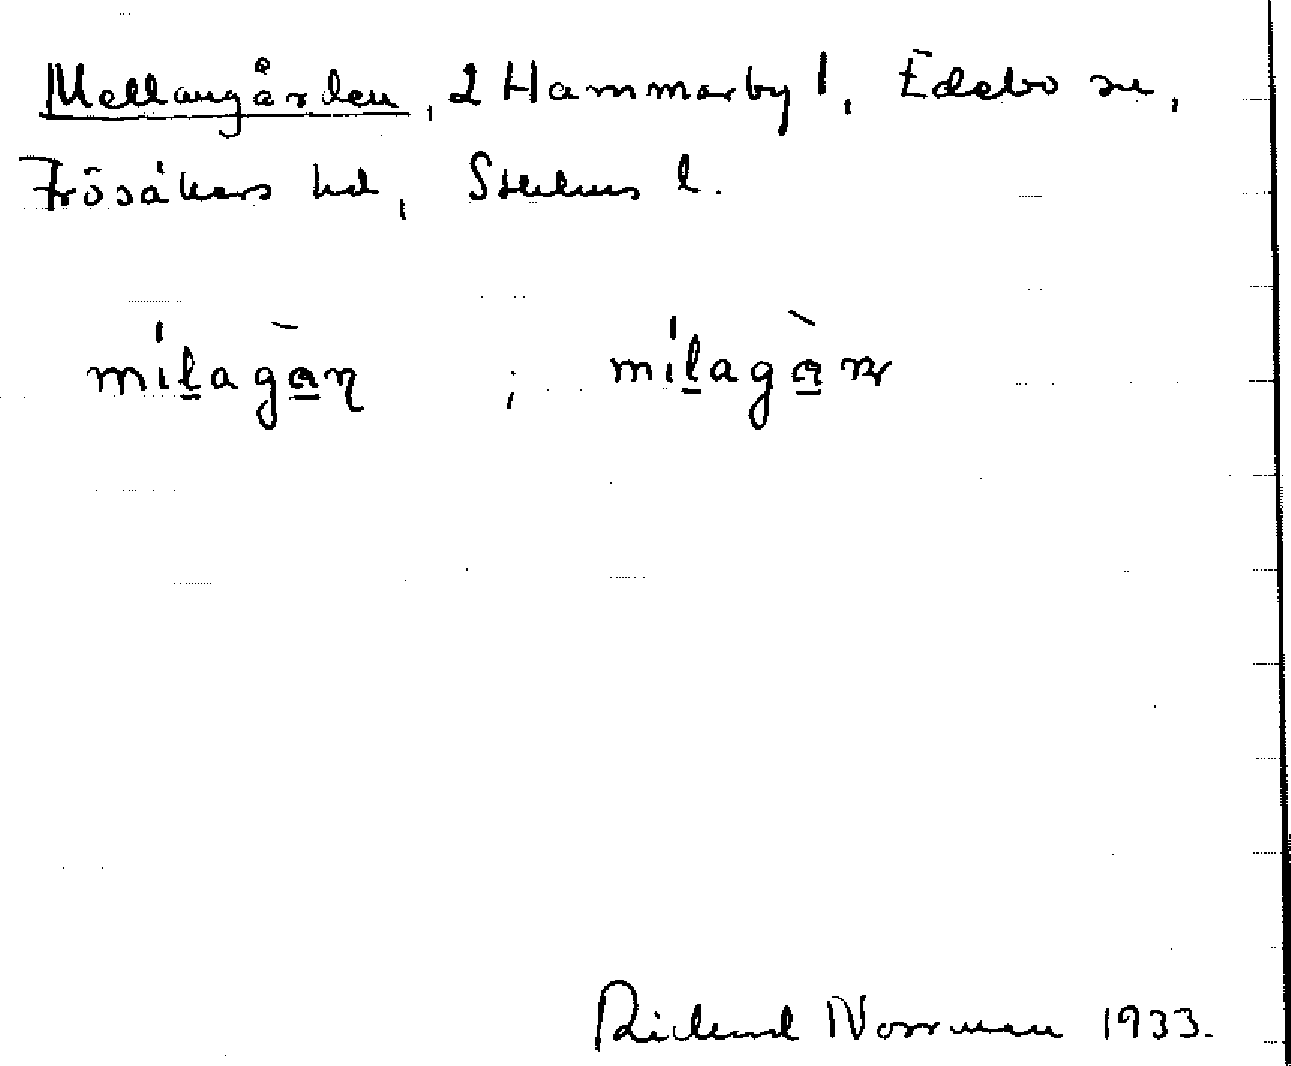 Mellangården, 2 Hammarby 1, Edebo sn,
Frösåkers hd, Sthlms l.
mílagàn ; mílagàn
Rickard Norrman 1933.